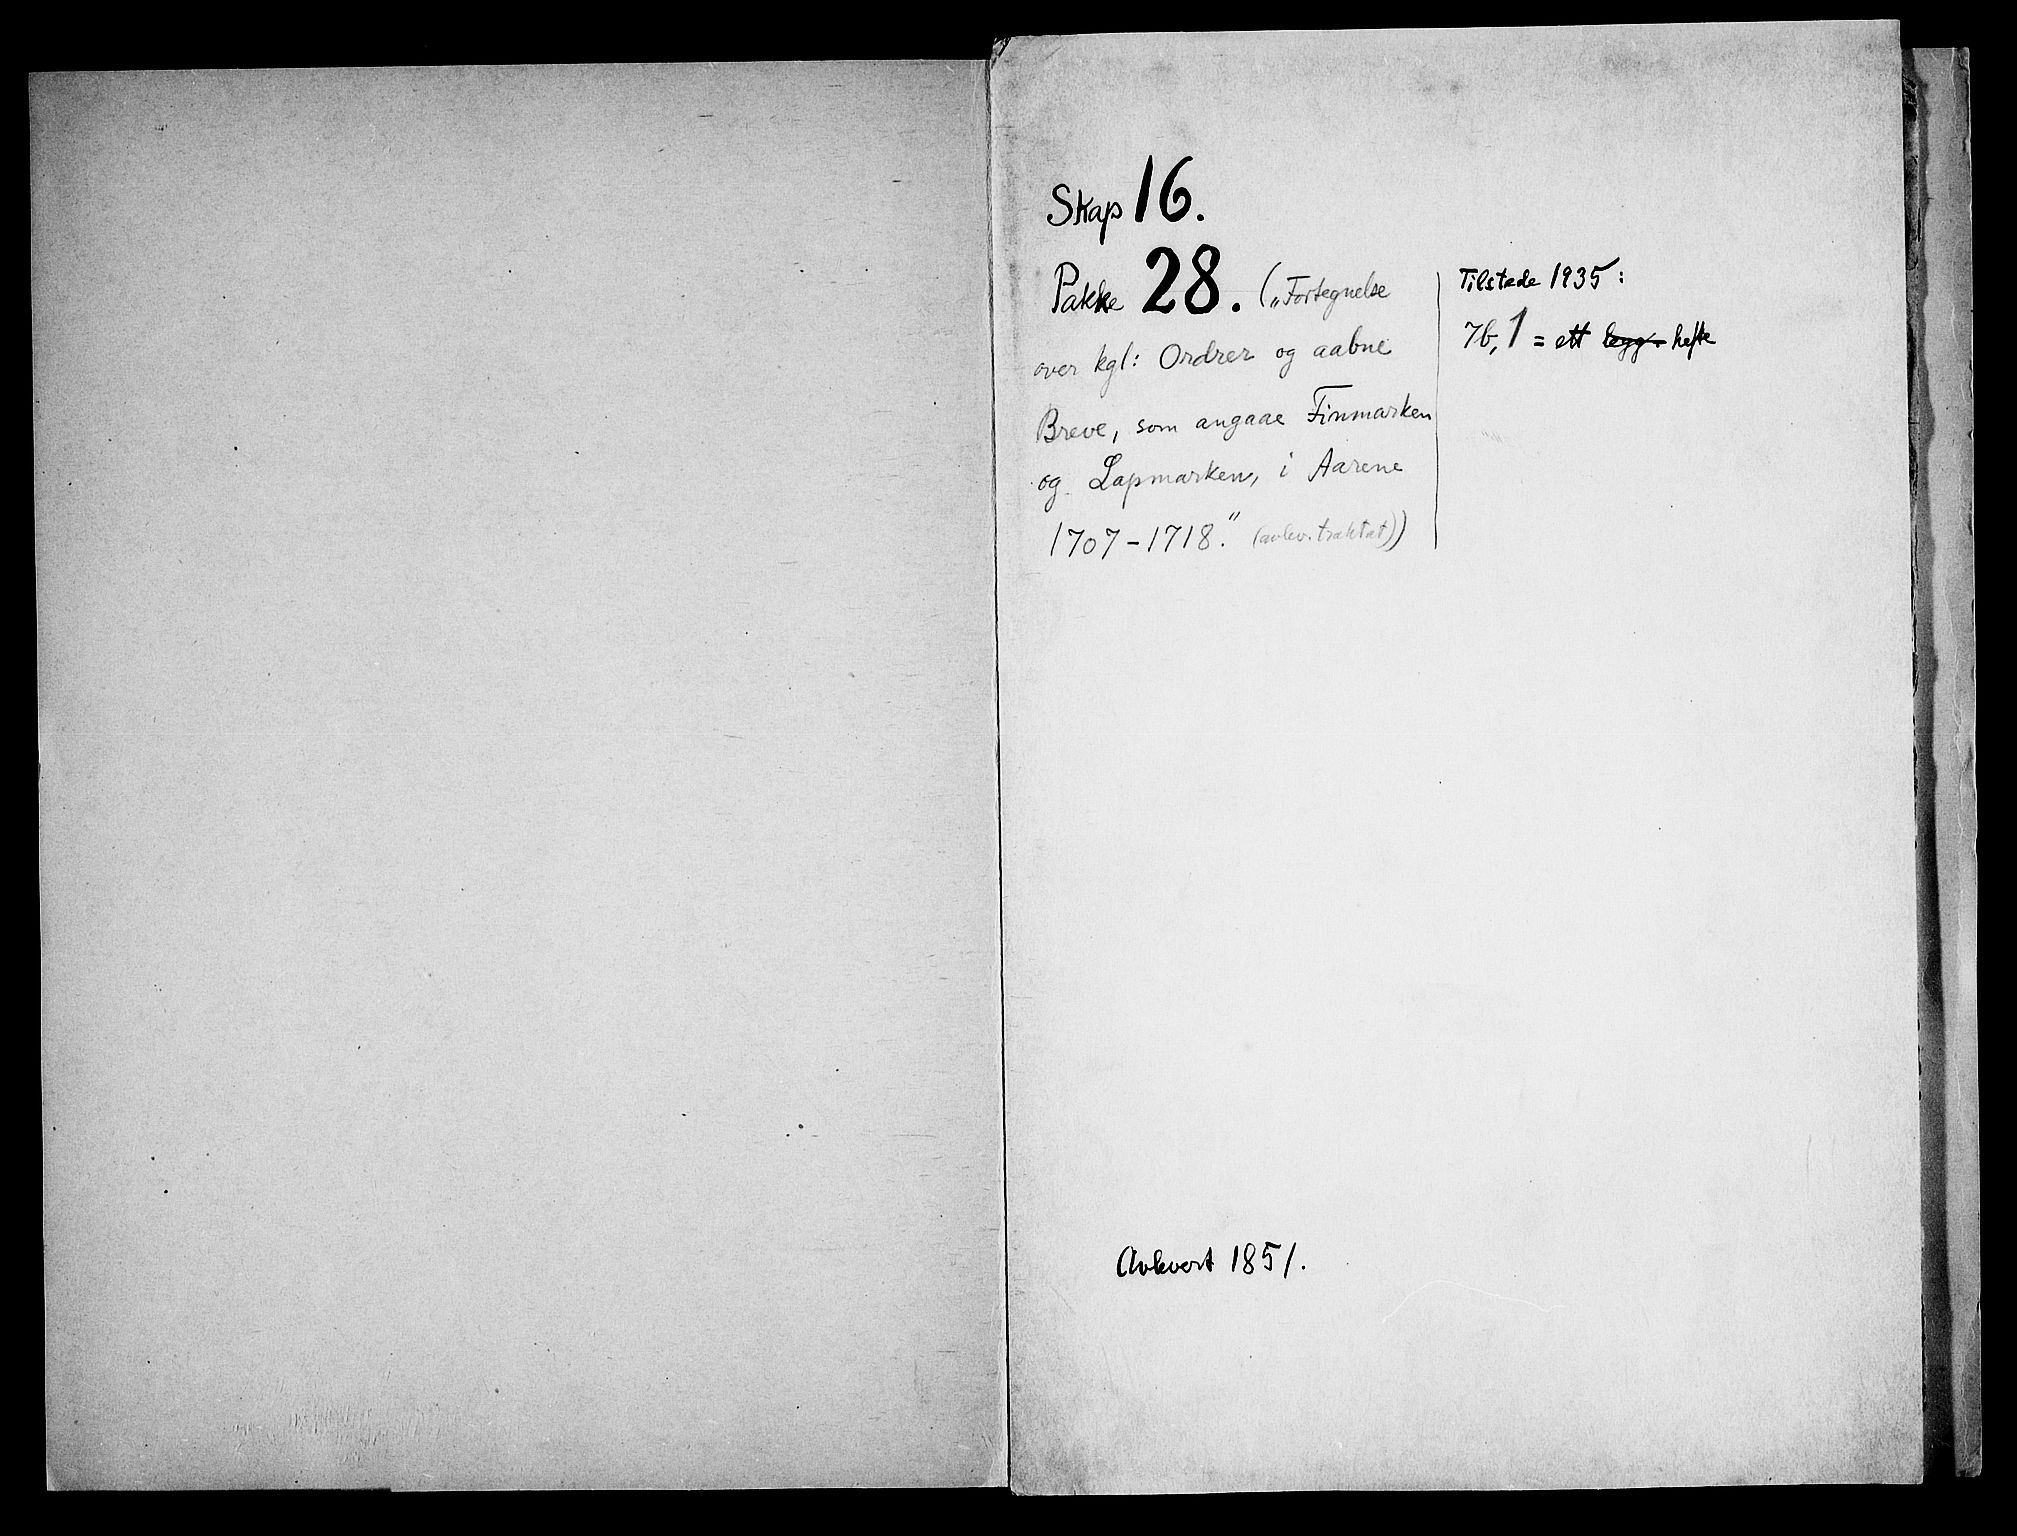 Skap 16.
Pakke 28. („Fortegnelse
over kgl: Ordrer og aabne
Breve, som angaae Finmarken
og Lapmarken, i Aarene
1707-1718." (avlev. traktat))
Tilstede 1935:
7b, 1 = ett legg. hefte
Avlevert 1851.